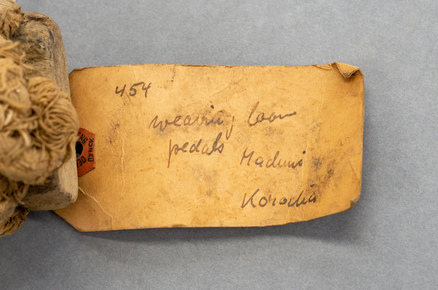 454
weaving loom
pedals Haduni
Korocha